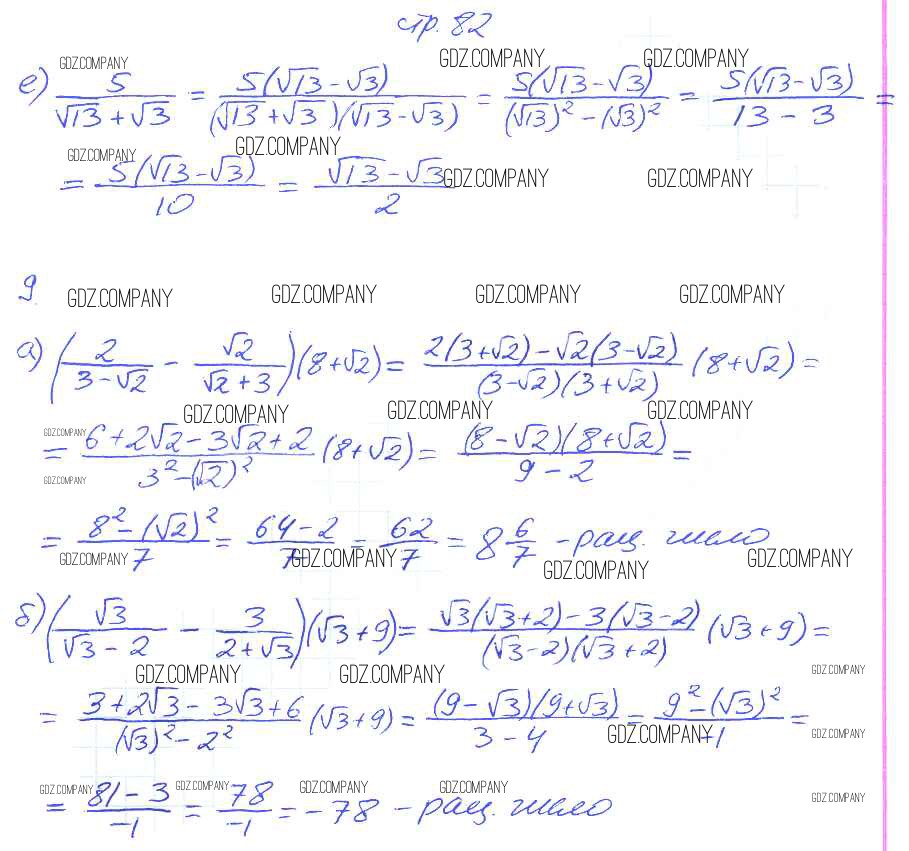 стр. 82
GDZ.COMPANY GDZ.COMPANY GDZ.COMPANY
е) 5/(√13 + √3) = 5(√13 - √3)/((√13 + √3)(√13 - √3)) = 5(√13 - √3)/((√13)² - (√3)²) = 5(√13 - √3)/(13 - 3) =
GDZ.COMPANY GDZ.COMPANY
= 5(√13 - √3)/10 = (√13 - √3)/2 GDZ.COMPANY GDZ.COMPANY
9. GDZ.COMPANY GDZ.COMPANY GDZ.COMPANY GDZ.COMPANY
а) (2/(3 - √2) - √2/(√2 + 3))(8 + √2) = (2(3 + √2) - √2(3 - √2))/((3 - √2)(3 + √2)) (8 + √2) =
GDZ.COMPANY GDZ.COMPANY GDZ.COMPANY GDZ.COMPANY
= (6 + 2√2 - 3√2 + 2)/(3² - (√2)²) (8 + √2) = ((8 - √2)(8 + √2))/(9 - 2) =
GDZ.COMPANY
= (8² - (√2)²)/7 = (64 - 2)/7 = 62/7 = 8 6/7 - рац. число
GDZ.COMPANY GDZ.COMPANY GDZ.COMPANY GDZ.COMPANY
б) (√3/(√3 - 2) - 3/(2 + √3))(√3 + 9) = (√3(√3 + 2) - 3(√3 - 2))/((√3 - 2)(√3 + 2)) (√3 + 9) =
GDZ.COMPANY GDZ.COMPANY GDZ.COMPANY
= (3 + 2√3 - 3√3 + 6)/((√3)² - 2²) (√3 + 9) = ((9 - √3)(9 + √3))/(3 - 4) = (9² - (√3)²)/-1 =
GDZ.COMPANY GDZ.COMPANY
GDZ.COMPANY GDZ.COMPANY GDZ.COMPANY GDZ.COMPANY GDZ.COMPANY
= (81 - 3)/-1 = 78/-1 = -78 - рац. число